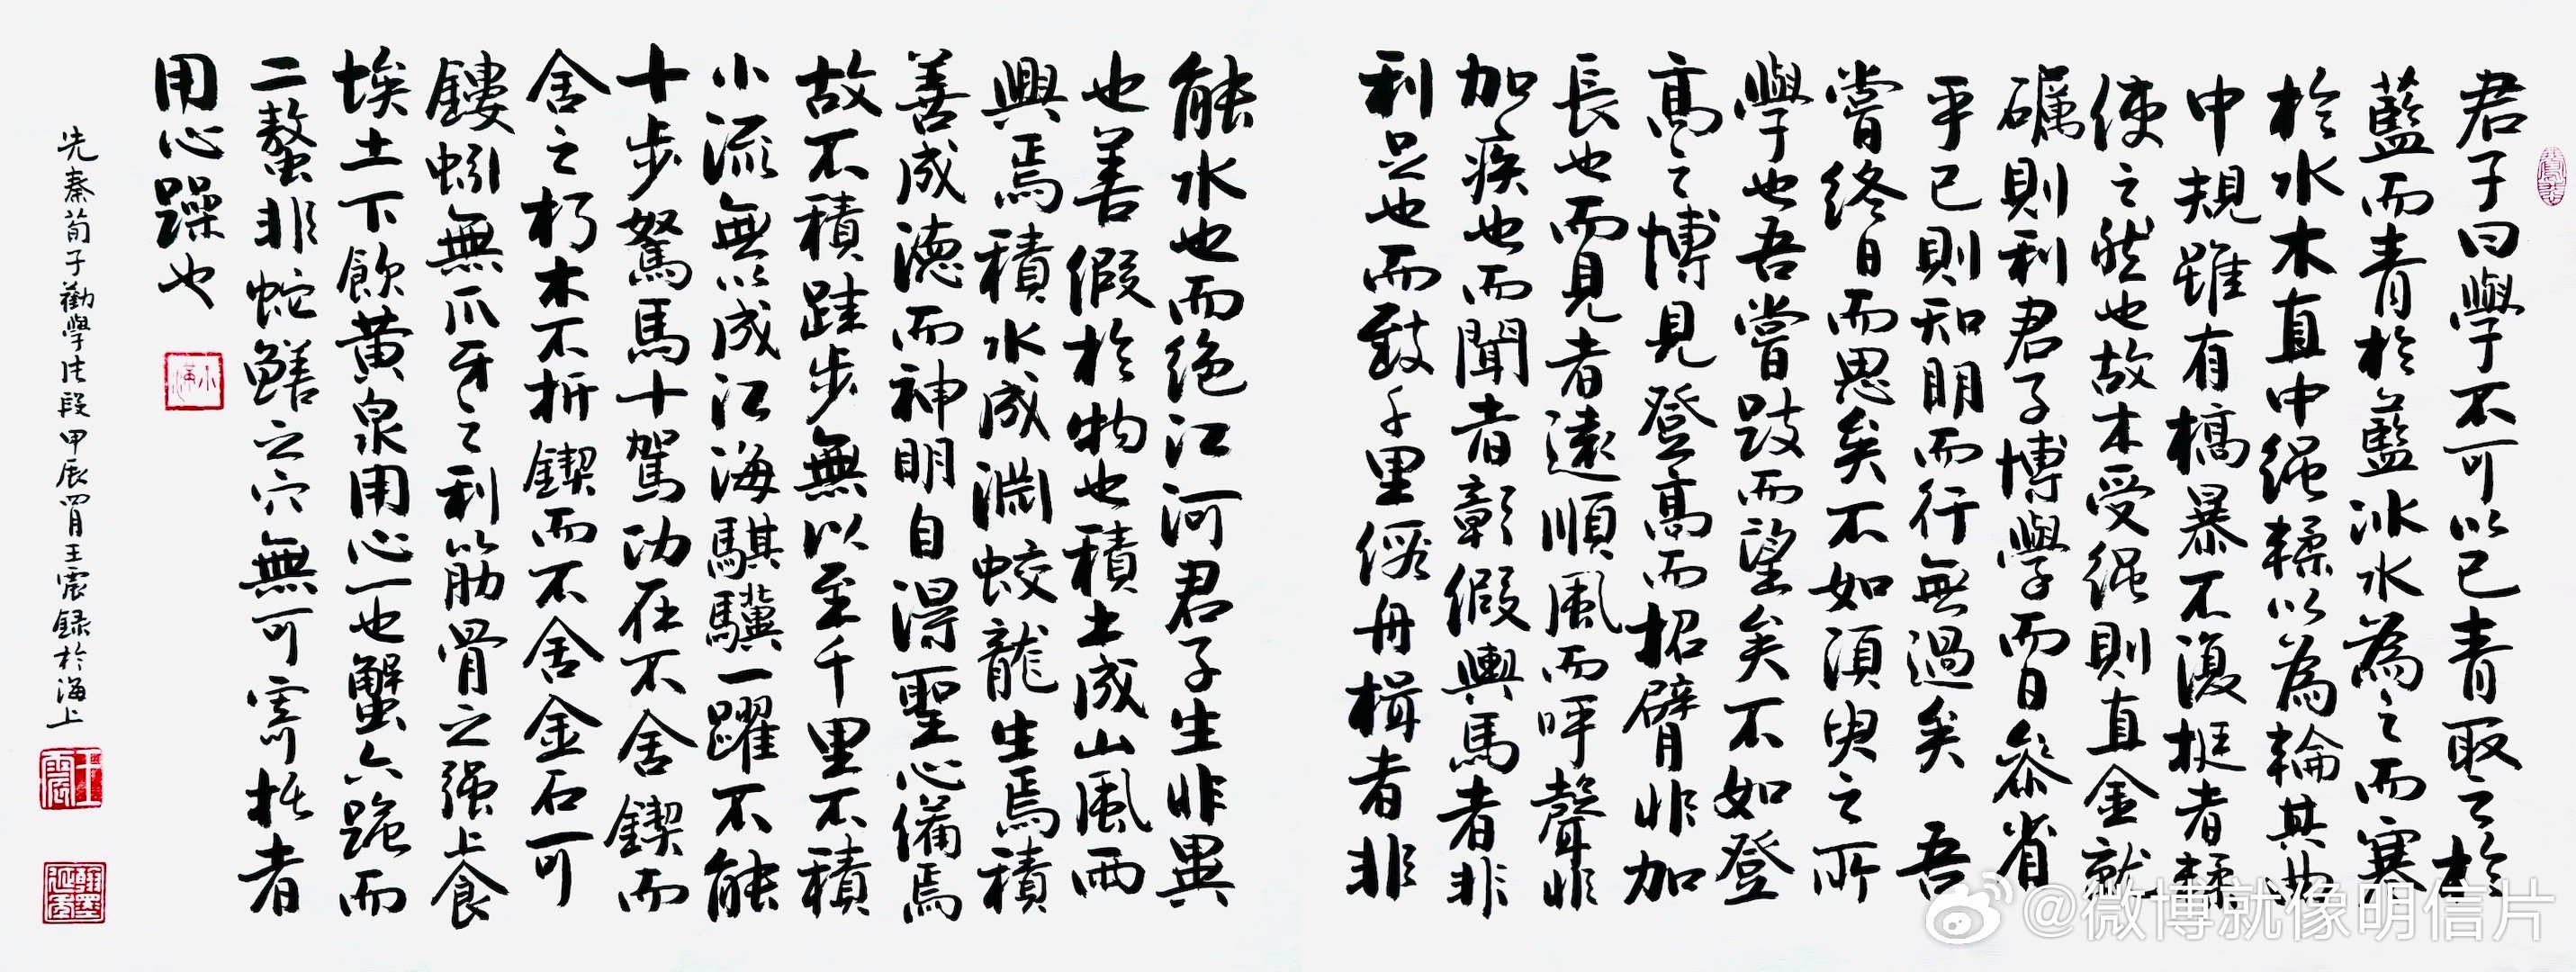 君子曰學不可以已青取之於
藍而青於藍冰水為之而寒
於水木直中绳輮以為輪其曲
中規雖有槁暴不復挺者輮
使之然也故木受绳則直金就
礪則利君子博學而日參省
乎己則知明而行無過矣 吾
嘗終日而思矣不如須臾之所
學也吾嘗跂而望矣不如登
高之博見登高而招臂非加
長也而見者遠順風而呼聲非
加疾也而聞者彰假輿馬者非
利足也而致千里假舟楫者非
能水也而绝江河君子生非異
也善假於物也積土成山風雨
興焉積水成淵蛟龍生焉積
善成德而神明自得聖心備焉
故不積跬步無以至千里不積
小流無以成江海騏驥一躍不能
十步駑馬十駕功在不舍鍥而
舍之朽木不折鍥而不舍金石可
鏤蚓無爪牙之利筋骨之强上食
埃土下飲黄泉用心一也蟹六跪而
二螯非蛇鱔之穴無可寄托者
用心躁也
先秦荀子勸學佳段甲辰四月王震録於海上
王震
@微博就像明信片